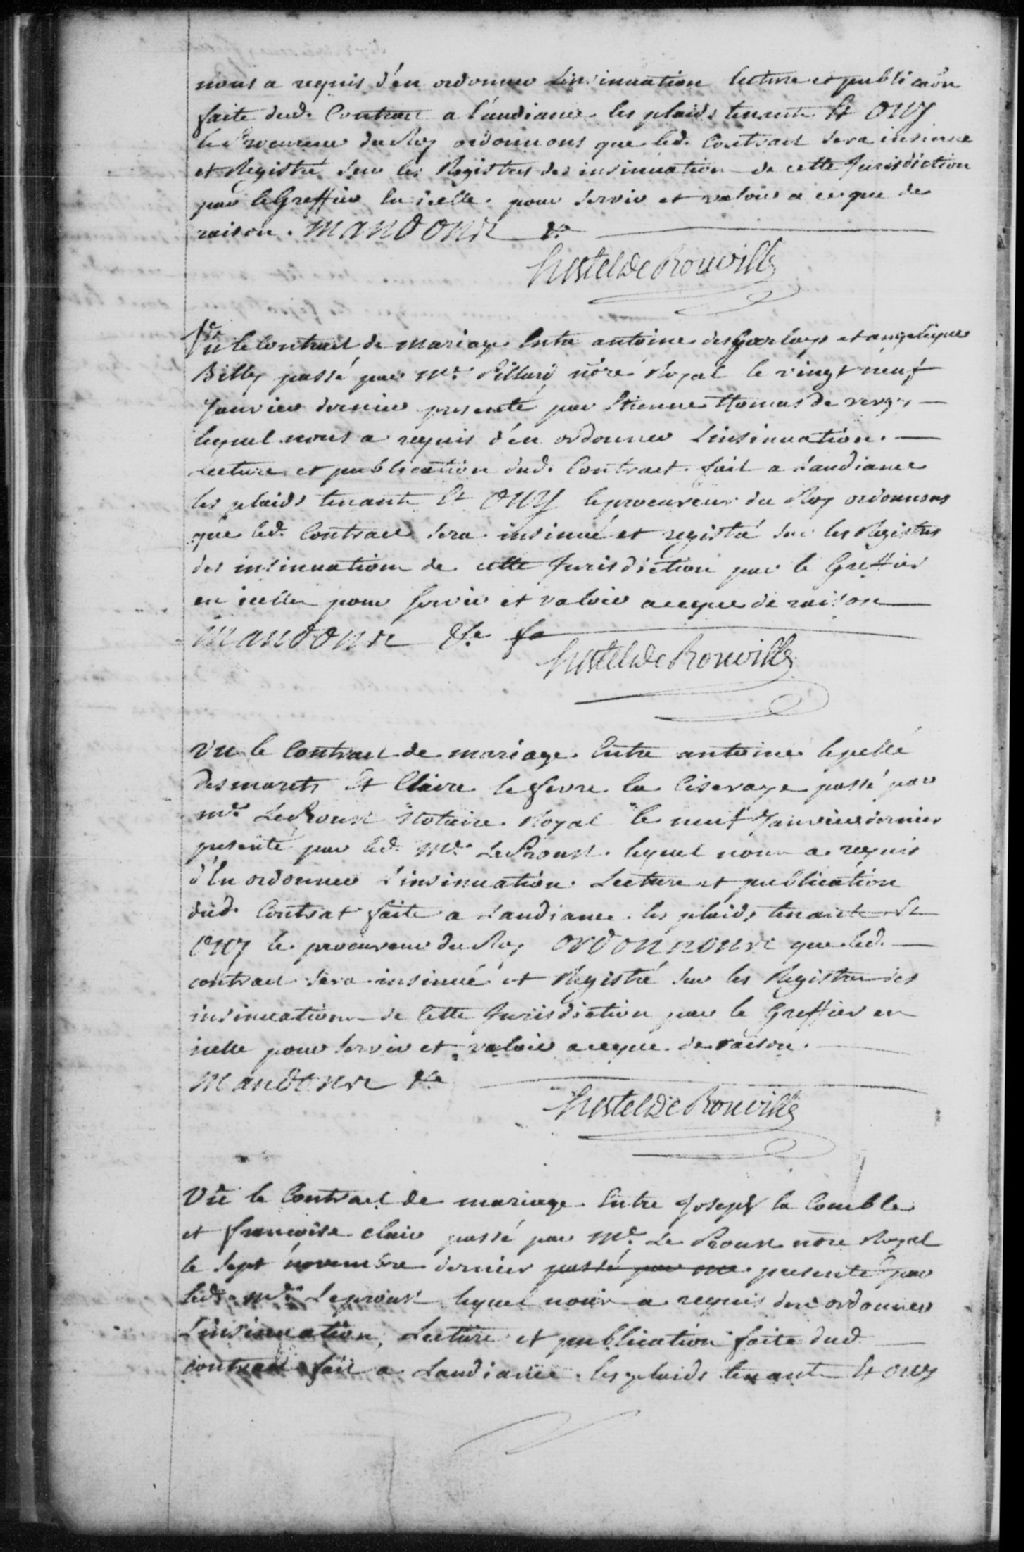 nous a requis d'en ordonner L'insinuation lecture et publicaôn
faite dud. Contract a l'audiance les plaids tenants Et OUY
le Procureur du Roy ordonnons que led. Contract sera insinué
et Registré sur les Registres des insinuation de cette Jurisdiction
par le Greffier En icelle pour servir et valoir a ce que de
raison. MANDONS &a
hertel De Rouville
Vû le Contract de mariage Entre antoine desgarlays et angelique
Billy passé par Me. Pillard nôre Royal le vingt neuf
Janvier dernier presenté par Etienne thomas de
lequel nous a requis d'en ordonner L'insinuation.
Lecture et publication dud. Contract fait a Laudiance
les plaids tenants Et OUY le procureur du Roy ordonnons
que led. Contract sera insinué et registré sur les Registres
des insinuation de cette Jurisdiction par le Greffier
en icelle pour servir et valoir aceque de raison
MANDONS &a
hertel De Rouville
Vu le Contract de mariage Entre antoine lepellé
Desmarets Et Claire le fevre la Ciseraye passé par
me. LeProust Notaire Royal le neuf Janvier dernier
presenté par led. Me. LeProust lequel nous a requis
d'En ordonner L'insinuation Lecture et publication
dud. Contrat faite a Laudiance les plaids tenants Et
OUY le procureur du Roy ORDONNONS que led.
contract sera insinué et Registré sur les Registres des
insinuation de Cette Jurisdiction par le Greffier en
icelle pour servir et valoir aceque de raison.
MANDONS &a
hertel De Rouville
Vû le Contract de mariage Entre Joseph la Comble
et françoise claire passé par Me. Le Proust nôre Royal
le sept novembre dernier passé par me presenté par
led. me. Leproust lequel nous a requis d'en ordonner
L'insinuation, Lecture et publication faite dud
contract fait a Laudiance les plaids tenants Et ouy